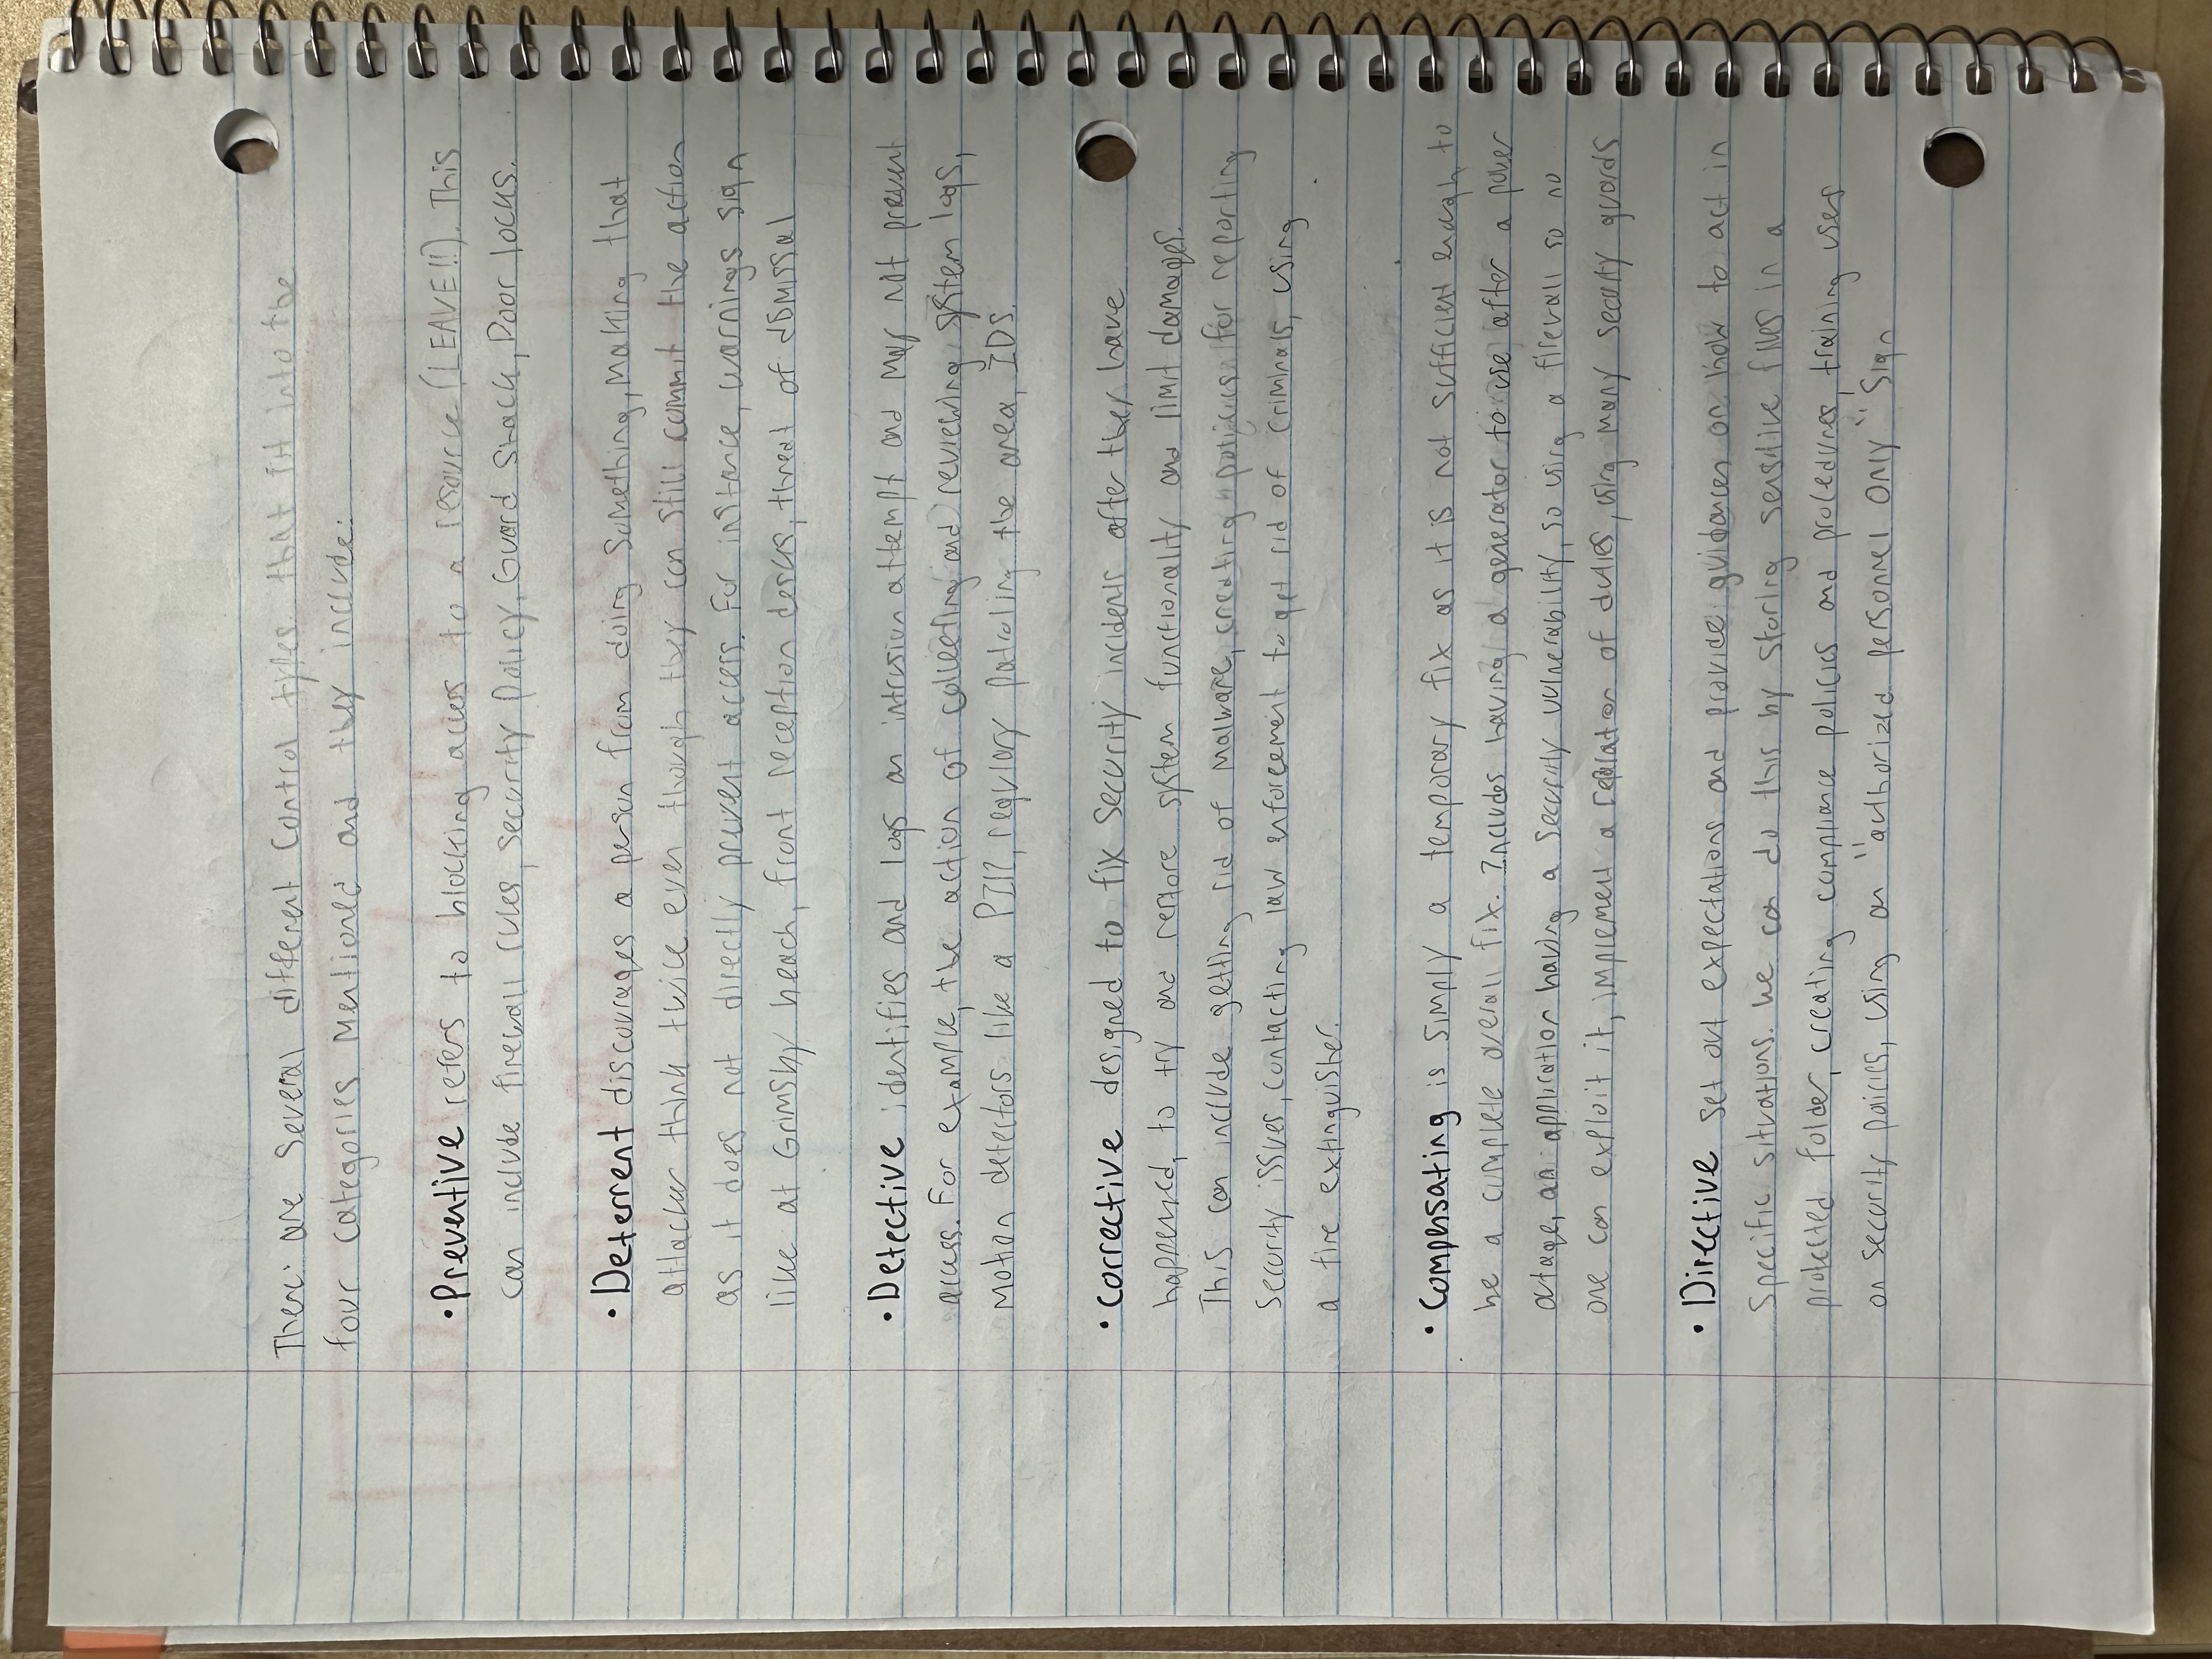 There are several different control types that fit into the
four categories mentioned and they include:
•Preventive refers to blocking access to a resource (LEAVE!!). This
can include firewall rules, Security Policy, Guard Shack, Door locks.
•Deterrent discourages a person from doing something, making that
attacker think twice even though they can still commit the action
as it does not directly prevent access. For instance, warnings sign
like at Grimsby beach, front reception desks, threat of dismissal
•Detective identifies and logs an intrusion attempt and may not prevent
access. For example, the action of collecting and reviewing system logs,
motion detectors like a PIR, regulary patroling the area, IDS.
•Corrective designed to fix security incidents after they have
happened, to try and restore system functionality and limit damages.
This can include getting rid of malware, creating policies for reporting
security issues, contacting law enforcement to get rid of criminals, using
a fire extinguisher.
•Compensating is simply a temporary fix as it is not sufficient enough to
be a complete overall fix. Includes having a generator to use after a power
outage, an application having a security vulnerability, so using a firewall so no
one can exploit it, implement a of duties, using many security guards
•Directive set out expectations and provide on how to act in
specific situations. We can do this by storing sensitive files in a
protected folder, creating compliance policies and procedures, training users
on security policies, using an "authorized personnel ONLY" sign